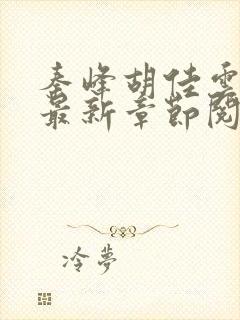 秦峰胡佳雲
最新章節閱
冷夢